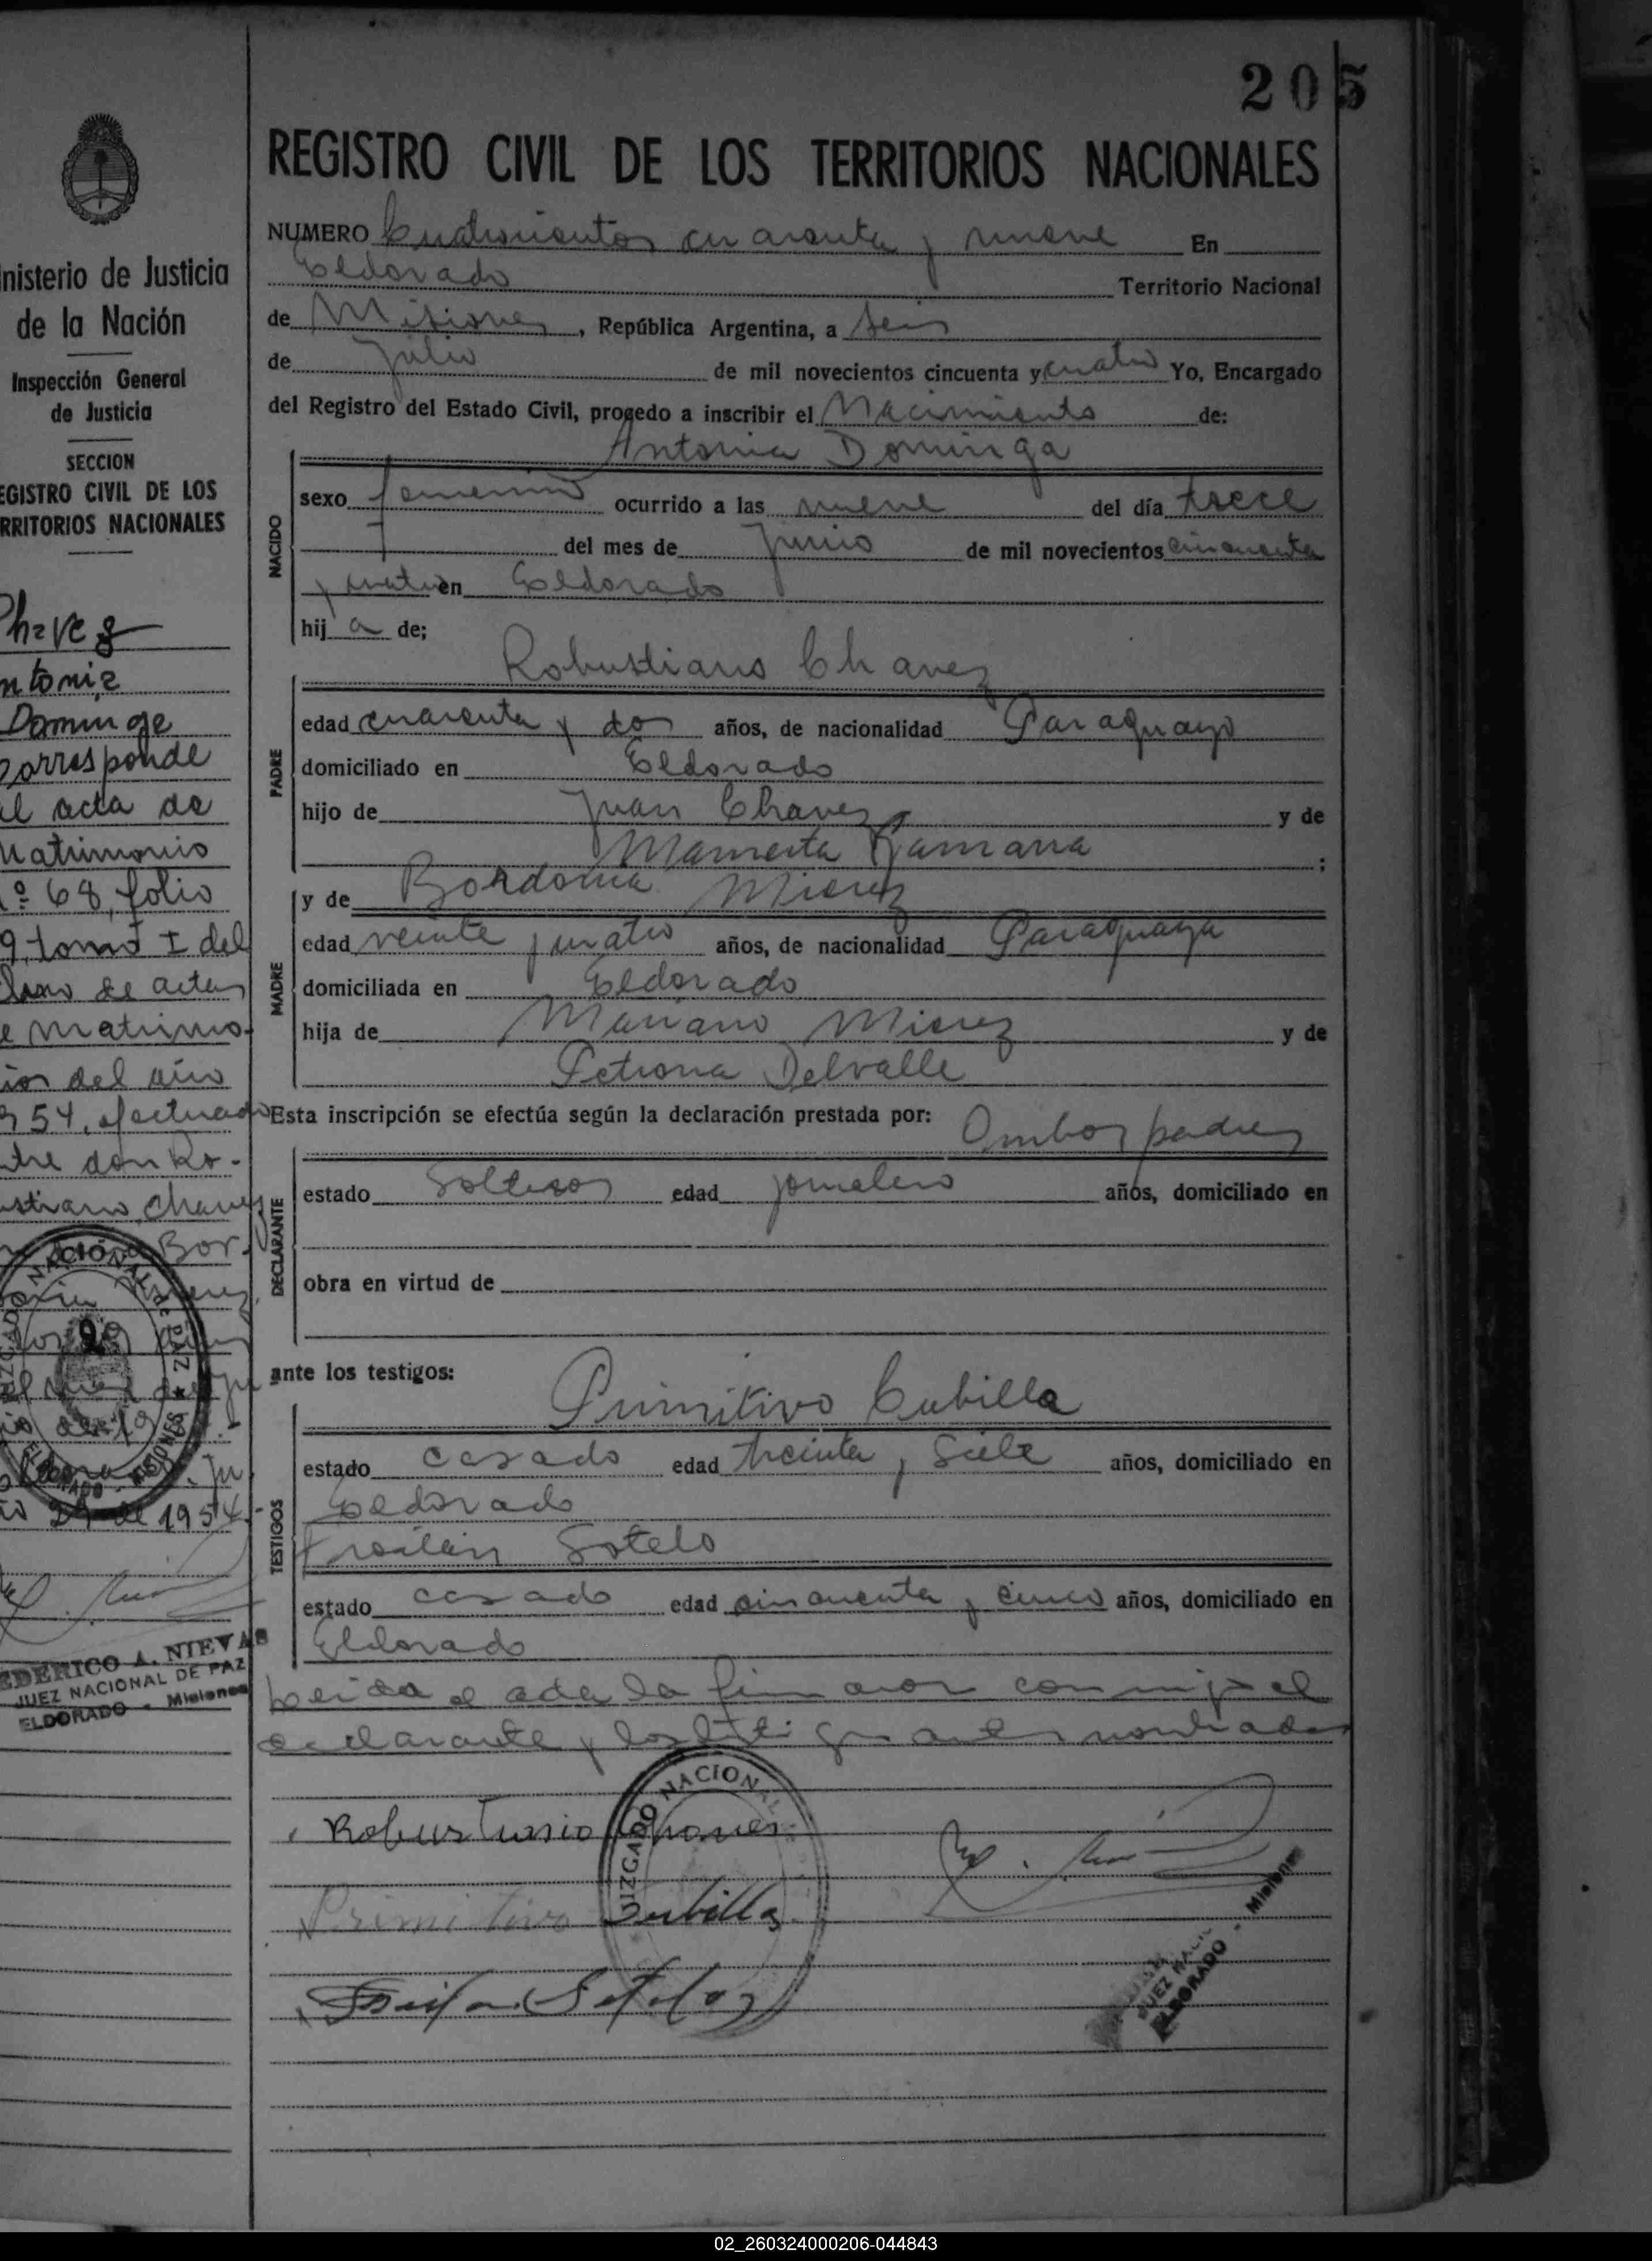 205
REGISTRO CIVIL DE LOS TERRITORIOS NACIONALES
NUMERO Cuatrocientos cuarenta y nueve En
Eldorado Territorio Nacional
de Misiones, República Argentina, a seis
de julio de mil novecientos cincuenta y cuatro Yo, Encargado
del Registro del Estado Civil, procedo a inscribir el Nacimiento de:
Antonia Dominga
NACIDO
sexo femenino ocurrido a las nueve del día trece
del mes de junio de mil novecientos cincuenta
y cuatro en Eldorado
hij a de;
Robustiano Chavez
PADRE
edad cuarenta y dos años, de nacionalidad Paraguayo
domiciliado en Eldorado
hijo de Juan Chavez y de
Mamerta ;
y de Mierez
MADRE
edad veinte y cuatro años, de nacionalidad Paraguaya
domiciliada en Eldorado
hija de Mariano Mierez y de
Petrona Delvalle
Esta inscripción se efectúa según la declaración prestada por: Ambos padres
DECLARANTE
estado Solteros edad jornalero años, domiciliado en
obra en virtud de
ante los testigos:
Primitivo Cubilla
TESTIGOS
estado casado edad treinta y siete años, domiciliado en
Eldorado
Froilan Sotelo
estado casado edad cincuenta y cinco años, domiciliado en
Eldorado
Leida el acta la firmaron conmigo el
declarante y los testigos antes nombrados
Robustiano Chavez
Primitivo Cubilla
JUZGADO NACIONAL
JUEZ NACIO
ELDORADO - Misiones
nisterio de Justicia
de la Nación
Inspección General
de Justicia
SECCION
EGISTRO CIVIL DE LOS
RRITORIOS NACIONALES
Chavez
ntonia
Dominga
Corresponde
al acta de
matrimonio
nº 68, folio
9, tomo I del
libro de actas
e matrimo-
ios del año
954, efectuado
tre don Ro-
ustiano Chavez
Bor-
de 1954.-
JUZGADO NACIONAL DE PAZ
ELDORADO - MISIONES
EDERICO A. NIEVAS
JUEZ NACIONAL DE PAZ
ELDORADO - Misiones
02_260324000206-044843